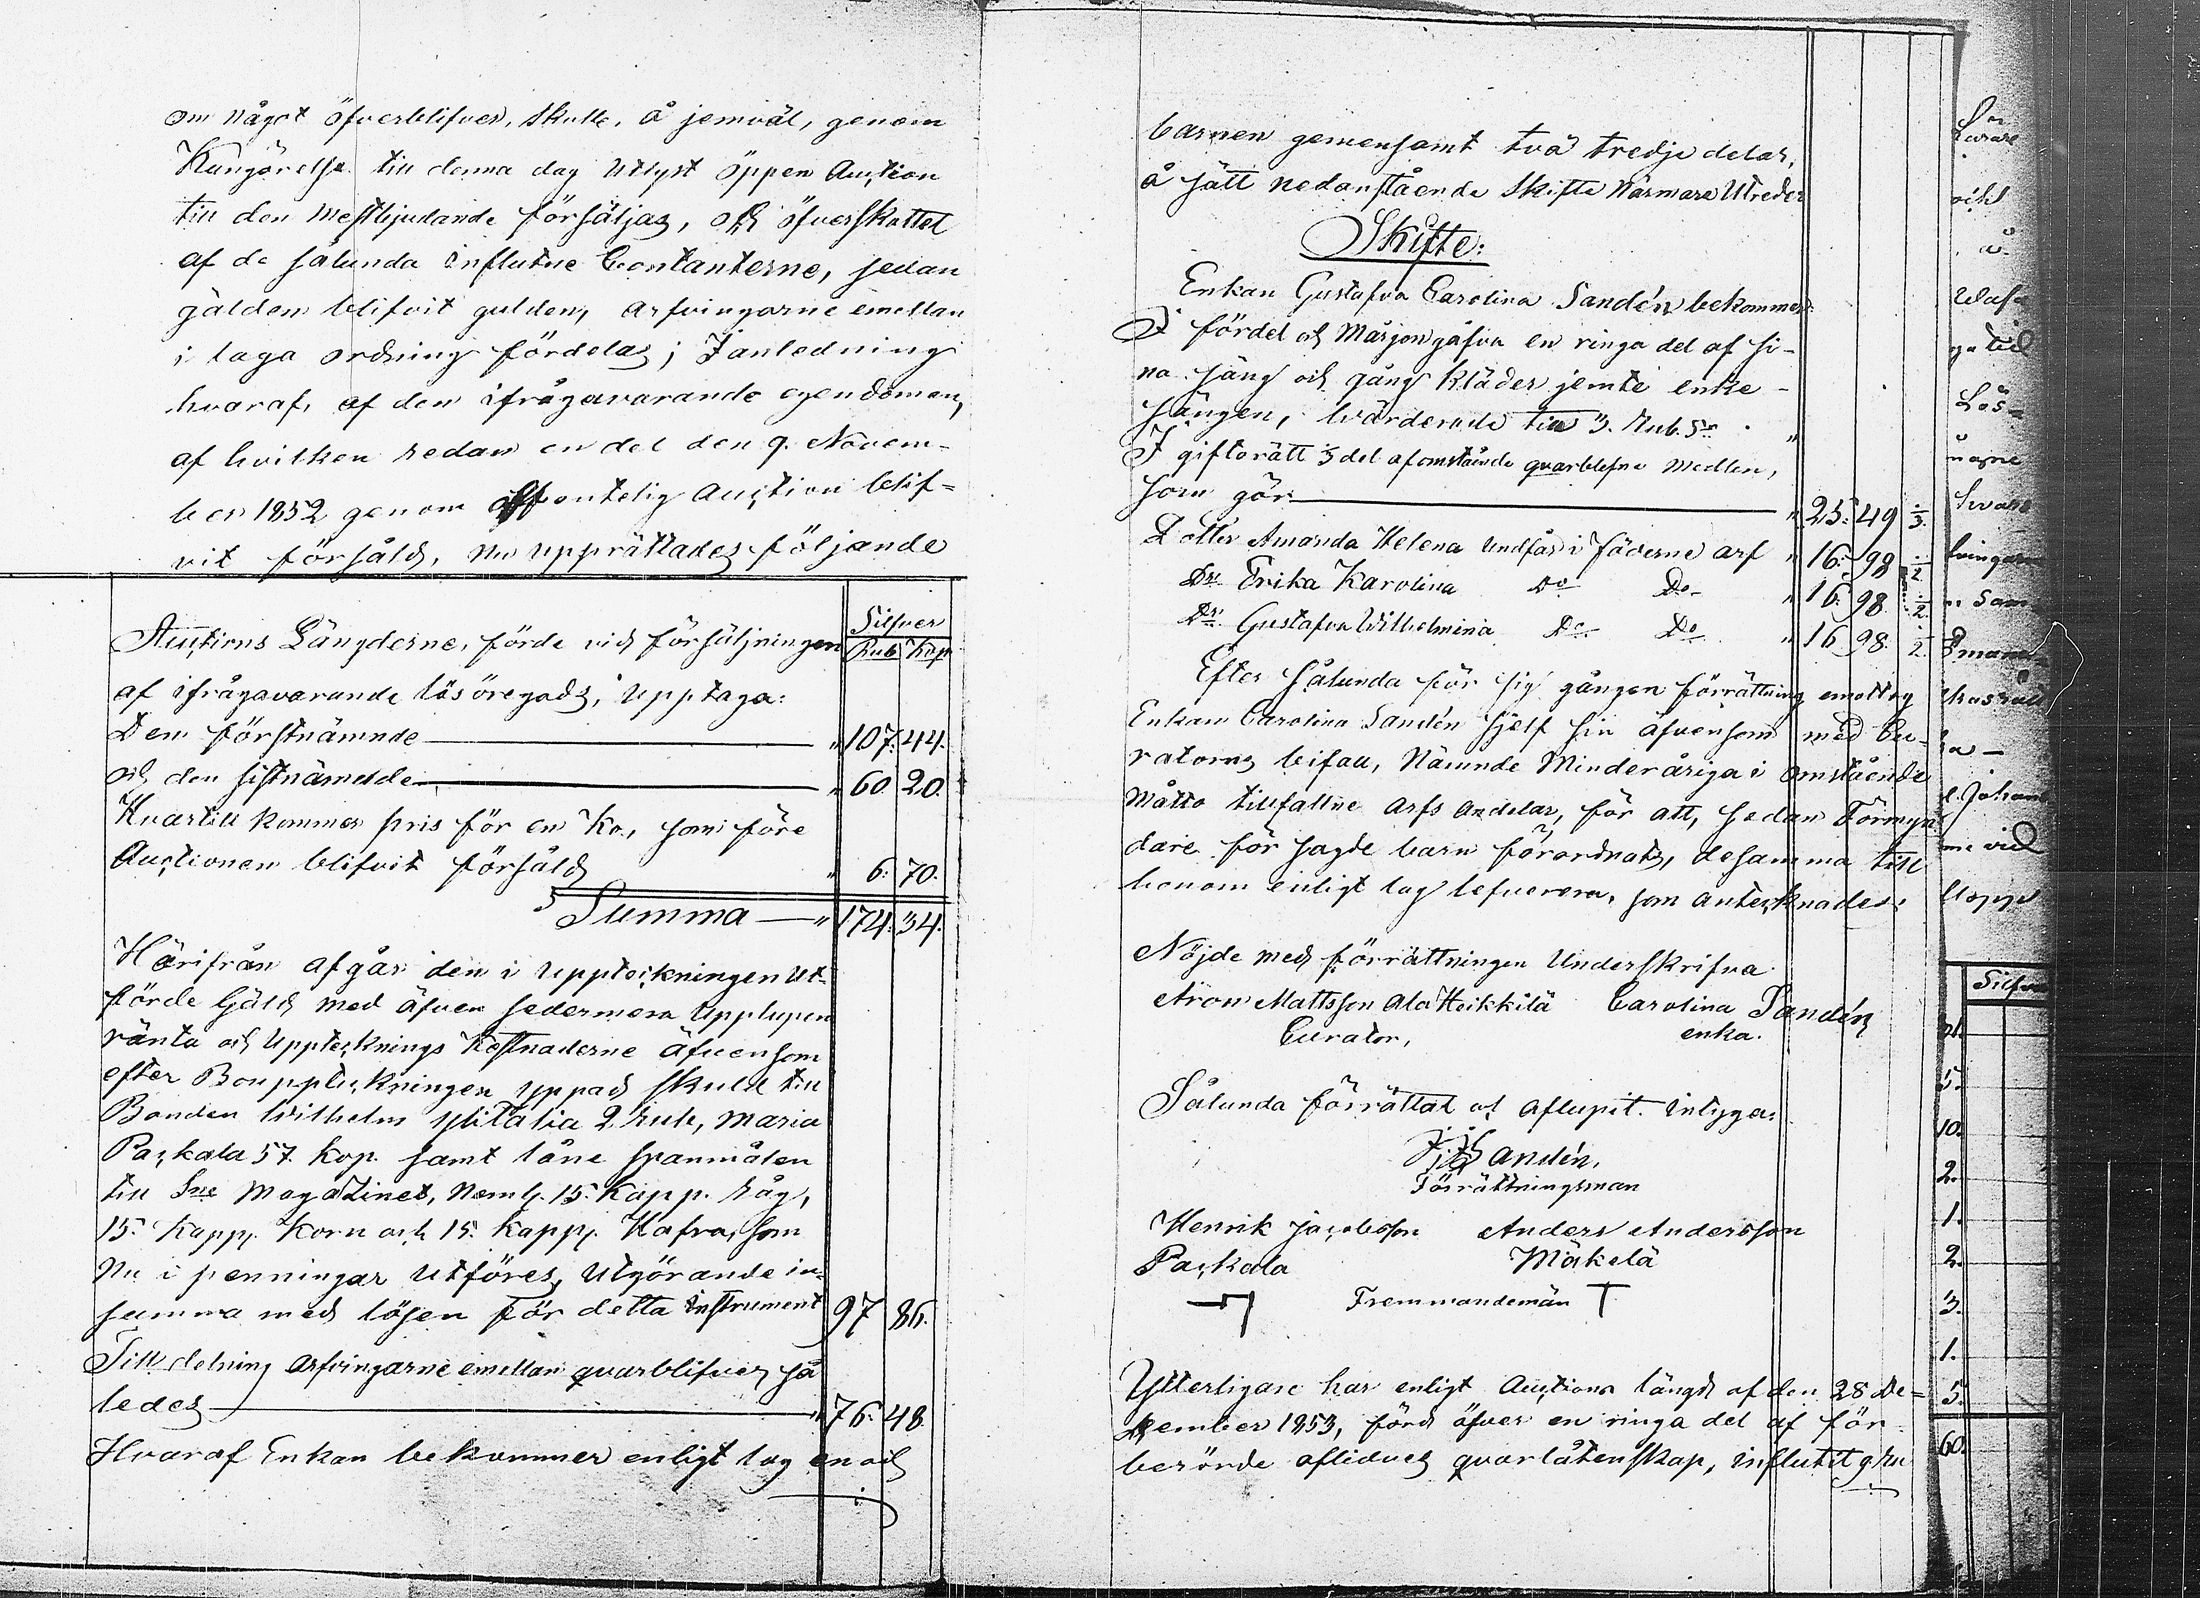 om något öfverblifver, skulle, å jemväl, genom
Kungörelse till denna dag utlyst öppen Auction
till den mestbjudande försäljas, och öfverskottet
af de sålunda influtne Contanterne, sedan
gälden blifvit gulden, arfvingarne emellan
i laga ordning fördelas; I anledning
hvaraf, af den ifrågavarande egendomen,
af hvilken redan en del den 9. Novem-
ber 1852 genom offentelig Auction blif=
vit försåld, nu upprättades följande
Silfver
Auctions Längderne, förde vid försäljningen Rub Kop
af ifrågavarande lösöregods, upptaga:
Den förstnämnde " 107. 44.
och den sistnämnde " 60. 20.
Hvartill kommer pris för en Ko, som före
Auctionen blifvit försåld " 6. 70.
Summa " 174. 34.
Härifrån afgår den i Uppteckningen ut-
förde Gäld med äfven sedermera Upplupen
ränta och Upptecknings Kostnaderne äfvensom
efter Bouppteckningen yppad skuld till
Bonden Wilhelm Ylitalia 2. Rub, Maria
Packala 57. Kop. samt låne spanmålen
till Sne Magazinet, Neml. 15. Kapp. Råg,
15. Kapp. Korn och 15. Kapp. Hafra, som
nu i penningar utföres, Utgörande in-
summa med lösen för detta instrument 97 86.
Till delning arfvingarne emellan qvarblifver så
ledes " 76. 48
Hvaraf Enkan bekommer enligt lag en och
barnen gemensamt två tredje delar,
å sätt nedanstående Skifte närmare Utreder
Skifte:
Enkan Gustafva Carolina Sandén bekommer:
I fördel och Morjongåfva en ringa del af si-
na säng och gång kläder jemte enke-
sängen, värderade till 3. Rub. Sr "
I giftorätt 1/3 del af omstående qvarblefne medlen,
som gör " 25. 49 1/3.
Dotter Amanda Helena undfår i fäderne arf " 16. 98 1/2
Dr. Erika Karolina Do Do " 16. 98. 1/2
Dr. Gustafva Wilhelmina Do Do " 16 98. 1/2.
Efter sålunda för sig gången förrättning emottog
Enkan Carolina Sandén sjelf sin äfvensom med Cu-
ratorns bifall, Nämnde Minderåriga i omstående
måtto tillfallne arfs andelar, för att, sedan Förmyn
dare för sagde barn förordnats, desamma till
honom enligt lag lefverera, som antecknades.
Nöjde med förrättningen Underskrifva
Aron Mattsson Ala Heikkilä Carolina Sandén
Curator, enka.
Sålunda förrättat och aflupit. intygar
Sandén,
Förrättningsman
Henrik Jacobsson Anders Andersson
Packala Mäkelä
Fremmandemän
Ytterligare har enligt Auctions längd af den 28 De=
cember 1853, förd öfver en ringa del af för-
berörde aflidnes qvarlåtenskap, influtit 9 Ru